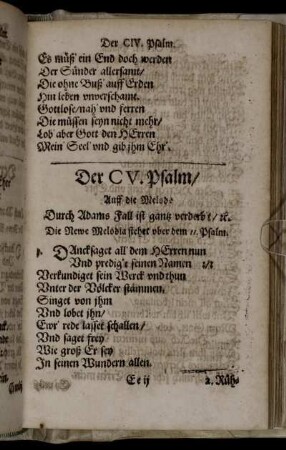 Der CIV. Psalm.
Es müß ein End doch werden
Der Sünder allersamt/
Die ohne Buß auff Erden
Hin leben unverschamt.
Gottlose/nah' und ferren
Die müssen seyn nicht mehr/
Lob aber Gott den HErren
Mein Seel' und gib jhm Ehr'.
Der CV. Psalm/
Auff die Melod:
Durch Adams Fall ist gantz verderbt/ ꝛc.
Die Newe Melodia stehet uber dem 11. Psalm.
DAncksaget all dem HErren nun
Vnd predigt seinen Namen
Verkundiget sein Werck und thun
Vnter der Völcker stämmen.
Singet von jhm
Vnd lobet jhn/
Ewr' rede lasset schallen/
Vnd saget frey
Wie groß Er sey
In seinen Wundern allen.
Ee ij 2. Rüh-